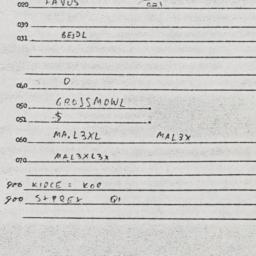 020 FAVUS 021
030
031 BEJDL
040 D
050 GROSSMOWL
051 $
060 MAL3XL MAL3X
070 MAL3XL3X
900 KIRCE = KOP
900 SXPREX Q1